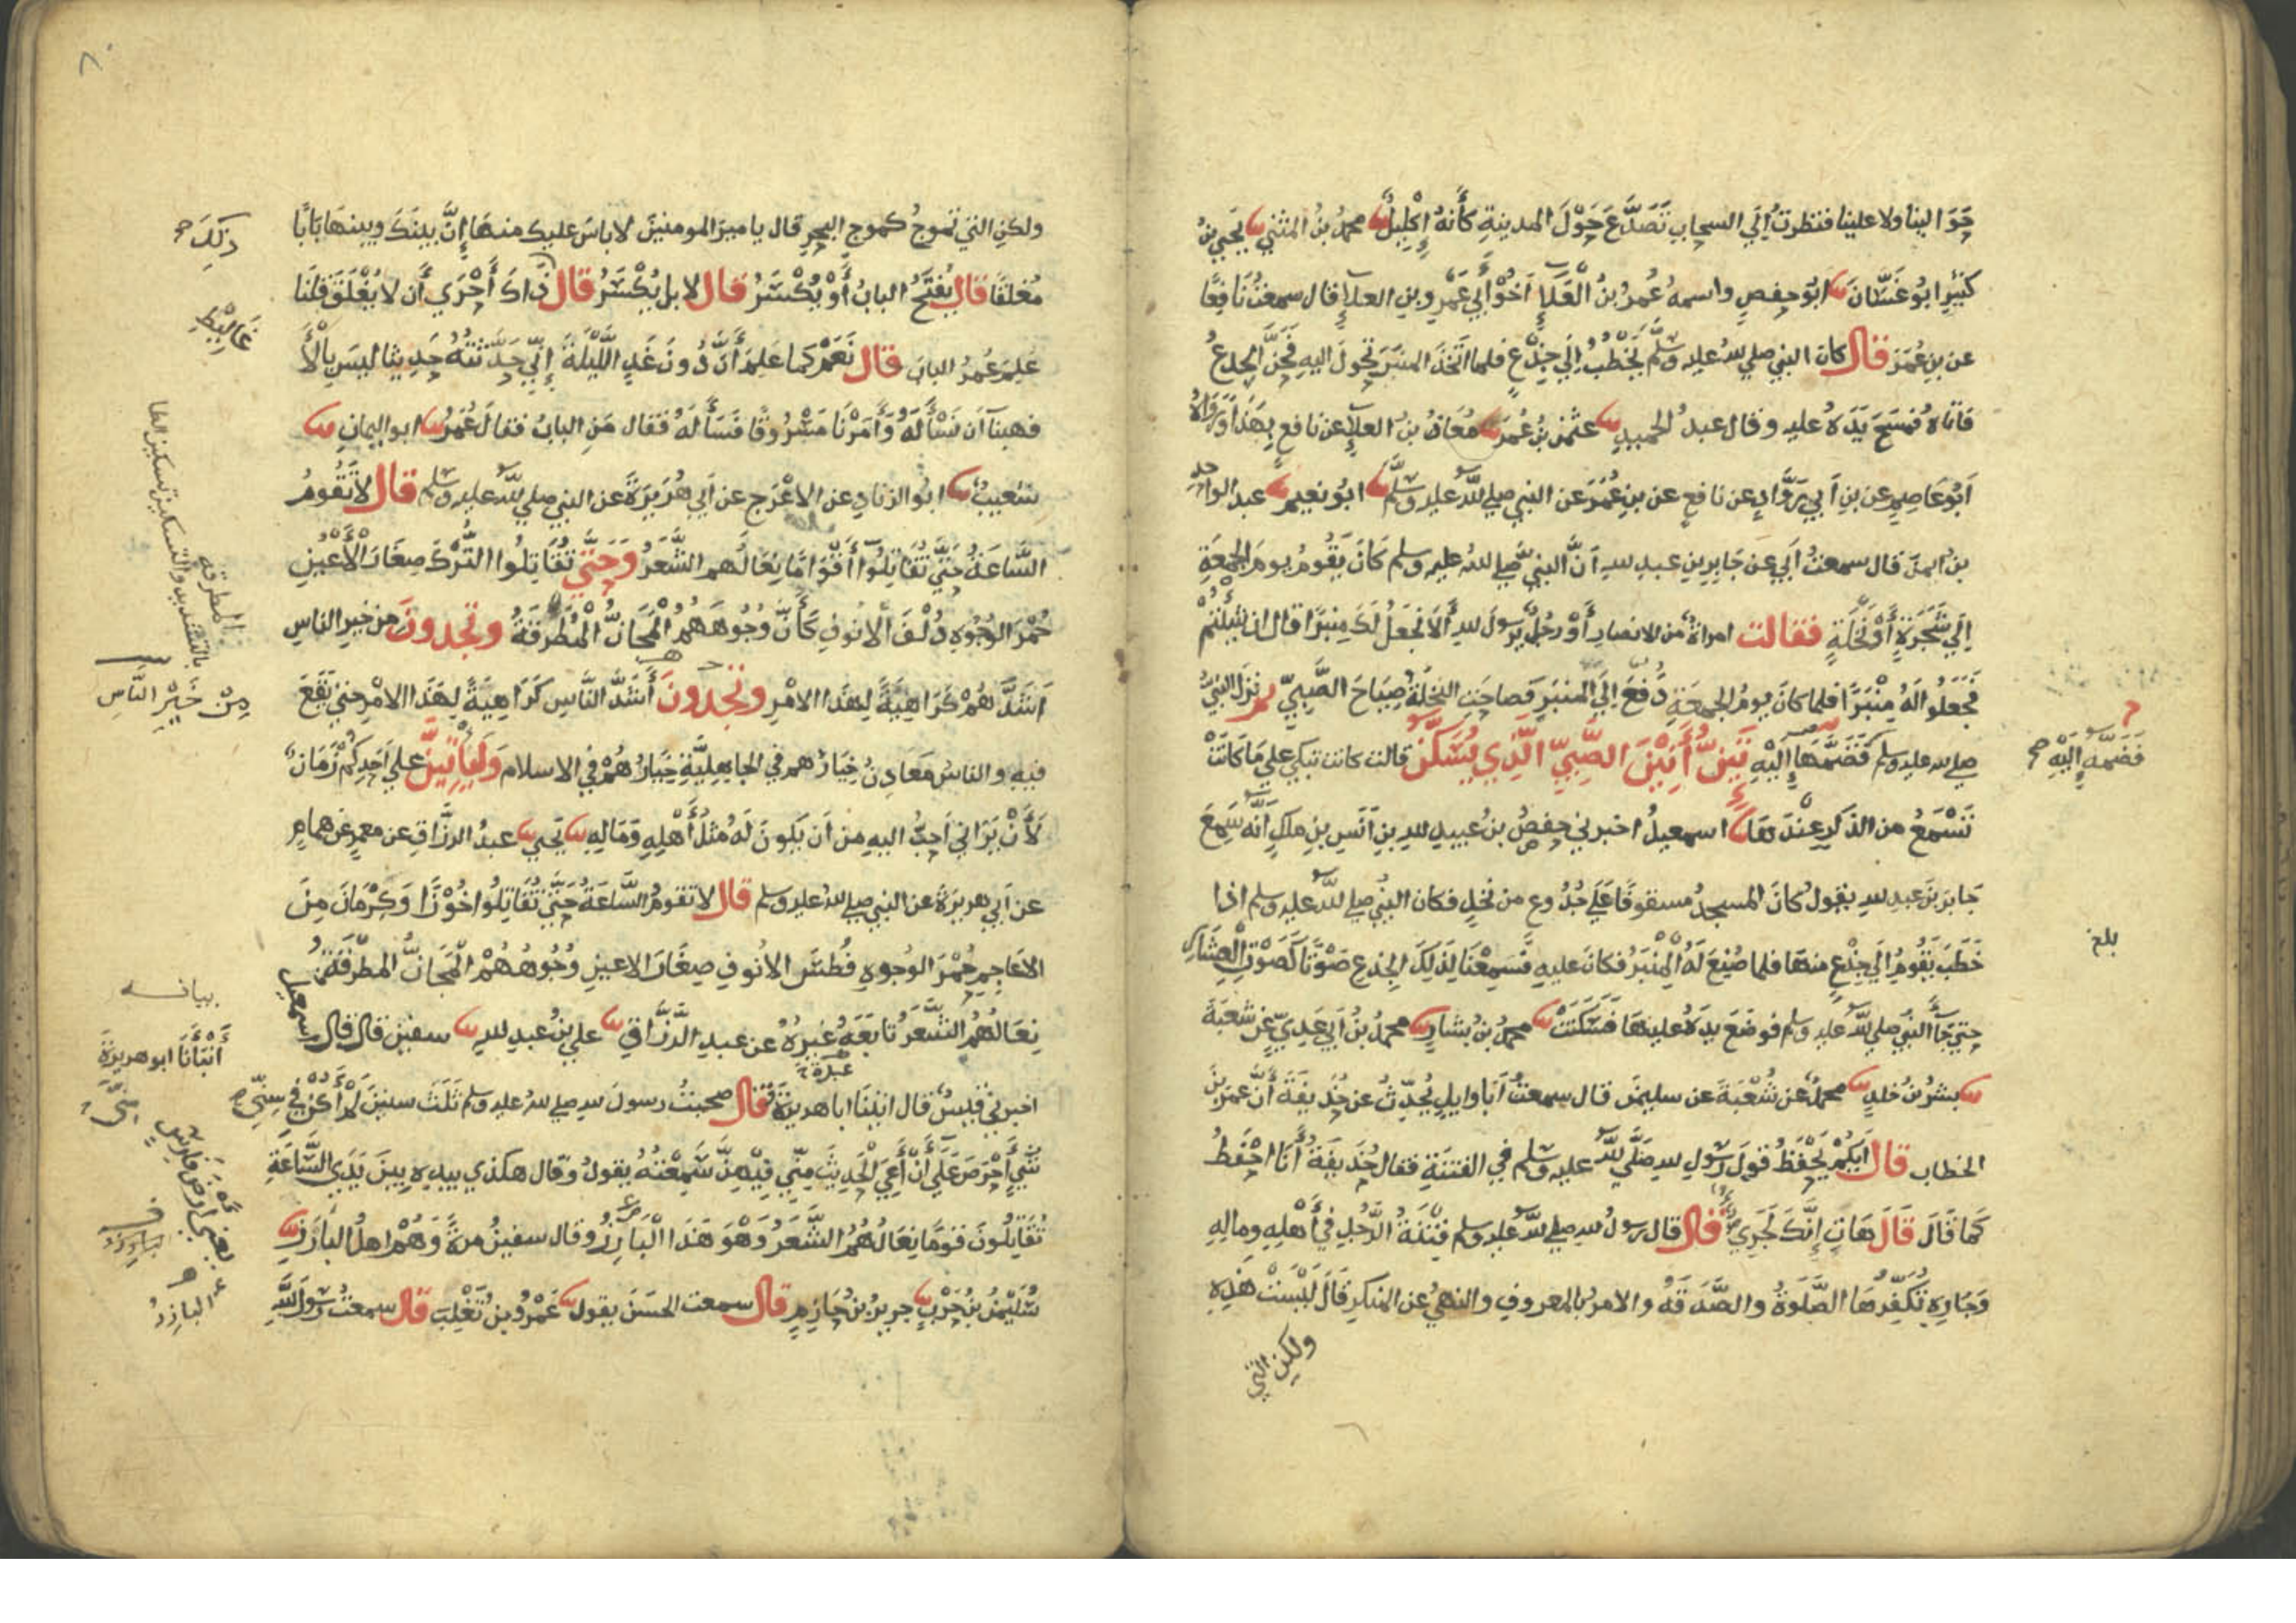 حَوَالينا ولا علينا فنظرتُ إِلَي السحاب تَصَدَّعَ حَوْلَ المدينةِ كَأَنهُ إِكْلِيلٌ ثنا محمدُ بنُ المثني ثنا يَحيي بنُ
كثيرٍ ابُو غَسَّانَ ثنا ابُو حفصٍ واسمهُ عُمرُ بنُ الْعَلاءِ اَخُوْ أَبي عَمْرِو بنِ العلاءِ قال سمعتُ نَافِعًا
عن بنِ عُمَرَ قال كان النبي صلي الله عليه وسلم يَخْطُبُ اِلَي جِذْعٍ فلما اتَّخَذَ المنبَرَ تحوَّلَ اليهِ فَحَنَّ الجِذعُ
فاتاهُ فمَسَحَ يَدَهُ عليه وقال عبدُ الحميدِ ثنا عثمٰنُ بْنُ عُمَرَ ثنا مُعَاذُ بنُ العلاءِ عن نافعٍ بِهَذَا وَرَوَاهُ
اَبُو عَاصِمٍ عن بنِ اَبي رَوَّادٍ عن نافعٍ عن بنِ عُمَرَ عن النبي صلي الله عليه وسلم ثنا ابُو نعيمٍ ثنا عبد الواحدِ
بنُ ايمنَ قال سمعتُ اَبي عَن جَابِرِ بنِ عبدِ اللهِ اَنَّ النبيَّ صلي الله عليه وسلم كَانَ يَقُومُ يومَ الجمعَةِ
اِلَي شَجَرَةٍ أَوْ نَخْلَةٍ فقالت امراةٌ من الانصارِ أَوْ رجُلٌ يرسولَ اللهِ أَلَا نجعَلُ لَكَ مِنبَرًا قال ان شِئْتُمْ
فَجَعَلُوا لَهُ مِنْبَرًا فلما كانَ يومُ الجمعَةِ دُفِعَ اِلَي المنبَرِ فصاحَتِ النخلَةُ صِيَاحَ الصَّبِيِّ ثم نزَلَ النبيُّ
صلي الله عليه وسلم فَضَمَّهَا إِلَيْهِ تَئِنُّ أَنِيْنَ الصَّبِيِّ الَّذِي يُسَكَّنُ قالت كانت تبكي علي مَا كَانَتْ
فَضَمَّهُ إِلَيْهِ صح
تَسْمَعُ من الذكرِ عِنْدَهَا ثنا اسمعيلُ اخبرني حفصُ بنُ عُبيدِ اللهِ بنِ اَنَسِ بنِ ملكٍ اَنَّه سَمِعَ
جَابرَ بنَ عبدِ اللهِ يقولُ كانَ المسجِدُ مسقوفًا عَلَي جُذُوعٍ من نخلٍ فكان النبيُّ صلي الله عليه وسلم اذا
خَطَبَ يَقُومُ اِلَي جِذْعٍ منهَا فلما صُنِعَ لَهُ الْمِنْبَرُ فكانَ عليهِ فَسَمِعْنَا لِذَلِكَ الجذعِ صَوْتًا كَصَوْتِ الْعِشَارِ
بلغ
حتي جَاءَ النبيُّ صلي الله عليه وسلم فوضَعَ يَدَهُ عليهَا فَسَكَنَتْ ثنا محمدُ بنُ بشارٍ ثنا محمدُ بنُ اَبي عَدِيٍّ عن شعبَةَ
ثنا بشرُ بنُ خلدٍ ثنا محمدٌ عن شُعْبَةَ عن سليمٰنَ قال سمعتُ اَبَا وايلٍ يُحَدِّثُ عن حُذَيفَةَ اَنَّ عمرَ بنَ
الخطاب قال اَيُّكُمْ يَحْفَظُ قولَ رسُولِ اللهِ صَلَّي الله عليه وسلم في الفتنَةِ فقال حُذَيفَةُ أَنَا احْفَظُ
كَمَا قَالَ قَالَ هَاتِ إِنَّكَ لَجَرِيءٌ قال قال رسولُ اللهِ صلي الله عليه وسلم فِتْنَةُ الرَّجُلِ في أَهْلِهِ ومالِهِ
وَجَارِهِ تُكَفِّرُهَا الصَّلوةُ والصَّدَقَةُ والامرُ بالمعروفِ والنهيُ عن المنكَرِ قَالَ لَيْسَتْ هَذِهِ
ولكن التي
ولكنِ التي تموجُ كموجِ البحرِ قال يا اميرَ المومنينَ لا باسَ عليك منهَا إِنَّ بينَكَ وبينهَا بَابًا
ذَلِكَ صح
مُغلَقًا قال يُفتَحُ البابُ أَوْ يُكْسَرُ قال لا بل يُكْسَرُ قال ذَاكَ أَحْرَي أَن لا يُغْلَقَ قلنَا
عَلِمَ عُمرُ البابَ قال نَعَمْ كما عَلِمَ أَنَّ دُونَ غَدٍ اللَّيْلَةَ إِنِّي حَدَّثتُهُ حَدِيثًا ليسَ بِالْأَ
غَالِيْطِ
فهبنآ اَن نَسْأَلَهُ وَأَمَرْنَا مَسْرُوقًا فَسَأَلَهُ فقال مَنِ البابُ فقالَ عُمَرُ ثنا ابو اليمانِ ثنا
شعيبٌ ثنا ابُو الزنادِ عن الاعْرَجِ عن اَبي هُرَيرَةَ عن النبي صلي الله عليه وسلم قال لا تَقُومُ
السَّاعَةُ حَتَّي تُقَاتِلُوآ أَقْوَامًا نِعَالُهم الشَّعَرُ وَحَتَّي تُقَاتِلُوا التُّرْكَ صِغَارَ الْأَعْيُنِ
حُمْرَ الوُجُوهِ ذُلْفَ الْانُوفِ كَأَنَّ وُجُوهَهُمُ الْمَجَانُّ الْمُطْرَقَةُ وتجدون من خيرِ الناسِ
المطرقة
مِنْ خَيْرِ النَّاسِ
اَشَدَّهُمْ كَرَاهِيَةً لِهذَا الامْرِ وتجدونَ أَشَدَّ النَّاسِ كَرَاهِيَةً لِهَذَا الامْرِ حتي يَقَعَ
فيهِ والناسُ مَعَادِنُ خِيَارُهم في الجاهِلِيَّةِ خِيَارُهُمْ في الاسلام وَلَيَأْتِيَنَّ علي اَحَدِكُمْ زَمَانٌ
لَأَنْ يَرَانِي اَحَبُّ اليهِ من اَن يَكونَ لَهُ مثلُ أَهْلِهِ وَمَالِهِ ثنا يَحيي ثنا عبدُ الرزَّاقِ عن معمرٍ عن همامٍ
عن اَبي هريرةَ عن النبي صلي الله عليه وسلم قال لا تقومُ السَّاعَةُ حَتَّي تُقَاتِلُوا خُوْزًا وَكِرْمَانَ مِنَ
الاَعَاجِمِ حُمْرَ الوُجُوهِ فُطْسَ الاُنُوفِ صِغَارَ الاعينِ وُجُوهُهُمْ الْمَجَانُّ المطْرَقَةُ
نِعَالُهُمُ الشَّعَرُ تَابَعَهُ غَيرُهُ عن عبدِ الرَّزَّاقِ ثنا علي بنُ عبدِ اللهِ ثنا سفيٰنُ قال قال اسمعيلُ
أَنْبَأَنَا ابو هريرَةَ
اخبرني قيسٌ قال اتيْنَا ابا هريرَةَ فقال صحبتُ رسولَ اللهِ صلي الله عليه وسلم ثَلَثَ سنينَ لَمْ أَكُنْ فِي سِنِيَّ
شَيءٍ
شَيْءٍ أَحْرَصَ عَلَي أَنْ أَعِيَ الْحَدِيثَ مِنِّي فِيْهِنَّ سَمِعْتُهُ يقولُ وقال هكذي بيدِهِ بينَ يَدَيِ السَّاعَةِ
تُقَاتِلُونَ قومًا نِعَالُهُمُ الشَّعَرُ وَهْوَ هَذَا الْبَارِزُ وقال سفينُ مرةً وَهُمْ اهلُ البَازَرِ ثنا
يعني ارضَ فارس
سُلَيْمٰنُ بنُ حَرْبٍ ثنا جريرُ بنُ حَازِمٍ قال سمعت الحسَنَ يقول ثنا عَمْرُو بنُ تَغْلِبَ قال سمعتُ رسُولَ اللهِ
البازرُ